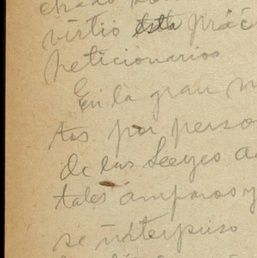 virtió esta prác
peticionarios
En la gran m
tas por perso
de las Leeyes a
tales amparos y
se interpuso